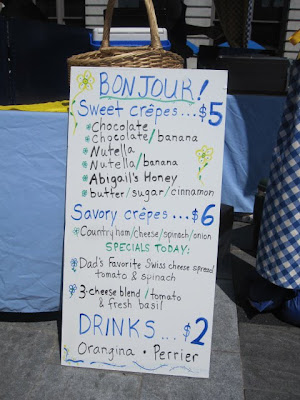 BONJOUR!
Sweet crêpes...$5
Chocolate
Chocolate/banana
Nutella
Nutella/banana
Abigail's Honey
butter/sugar/cinnamon
Savory crêpes...$6
Country ham/cheese/spinach/onion
SPECIALS TODAY:
Dad's Favorite Swiss cheese spread
tomato & spinach
3-cheese blend/tomato
& fresh basil
DRINKS...$2
Orangina • Perrier